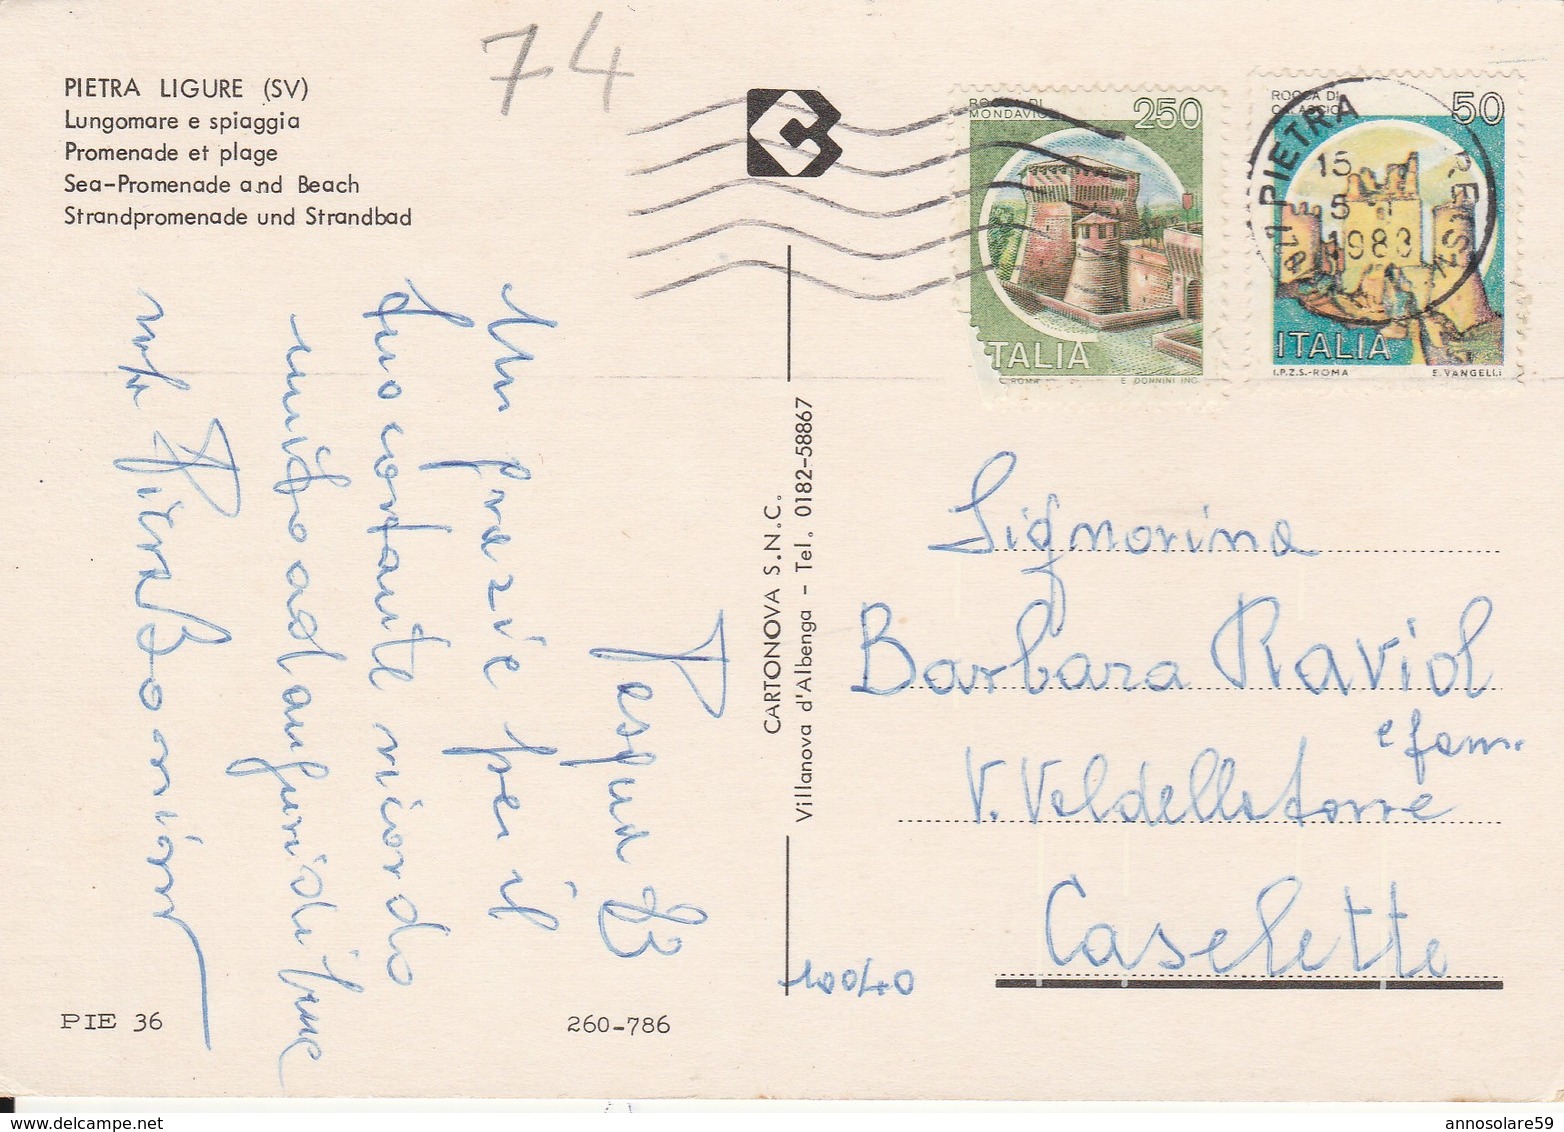 74
PIETRA LIGURE (SV)
Lungomare e spiaggia
Promenade et plage
Sea-Promenade and Beach
Strandpromenade und Strandbad
ROCCA DI
MONDAVIO
250
ITALIA
E. DONNINI INC.
ROCCA DI
CALASCIO
50
ITALIA
I.P.Z.S.-ROMA
E. VANGELLI
PIETRA
15
5
1983
Pasqua 83
Un grazie per il
tuo costante ricordo
unito ad auguri di bene
Piera Bonsioni
CARTONOVA S.N.C.
Villanova d'Albenga - Tel. 0182-58867
Signorina
Barbara Raviol
e fam.
V. Valdellatorre
10040
Caselette
PIE 36
260-786
annosolare59